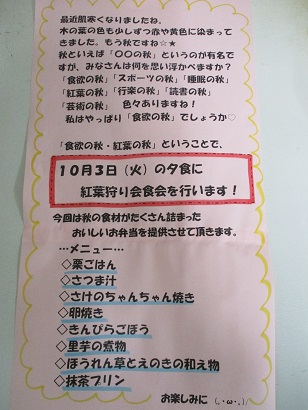 最近肌寒くなりましたね。
木の葉の色も少しずつ赤や黄色に染まって
きました。もう秋ですね☆★
秋といえば「〇〇の秋」というのが有名で
すが、みなさんは何を思い浮かべますか？
「食欲の秋」「スポーツの秋」「睡眠の秋」
「紅葉の秋」「行楽の秋」「読書の秋」
「芸術の秋」　色々ありますね！
私はやっぱり「食欲の秋」でしょうか♡
「食欲の秋・紅葉の秋」ということで、
１０月３日（火）の夕食に
紅葉狩り会食会を行います！
今回は秋の食材がたくさん詰まった
おいしいお弁当を提供させて頂きます。
…メニュー…
◇栗ごはん
◇さつま汁
◇さけのちゃんちゃん焼き
◇卵焼き
◇きんぴらごぼう
◇里芋の煮物
◇ほうれん草とえのきの和え物
◇抹茶プリン
お楽しみに（.・ω・.）/